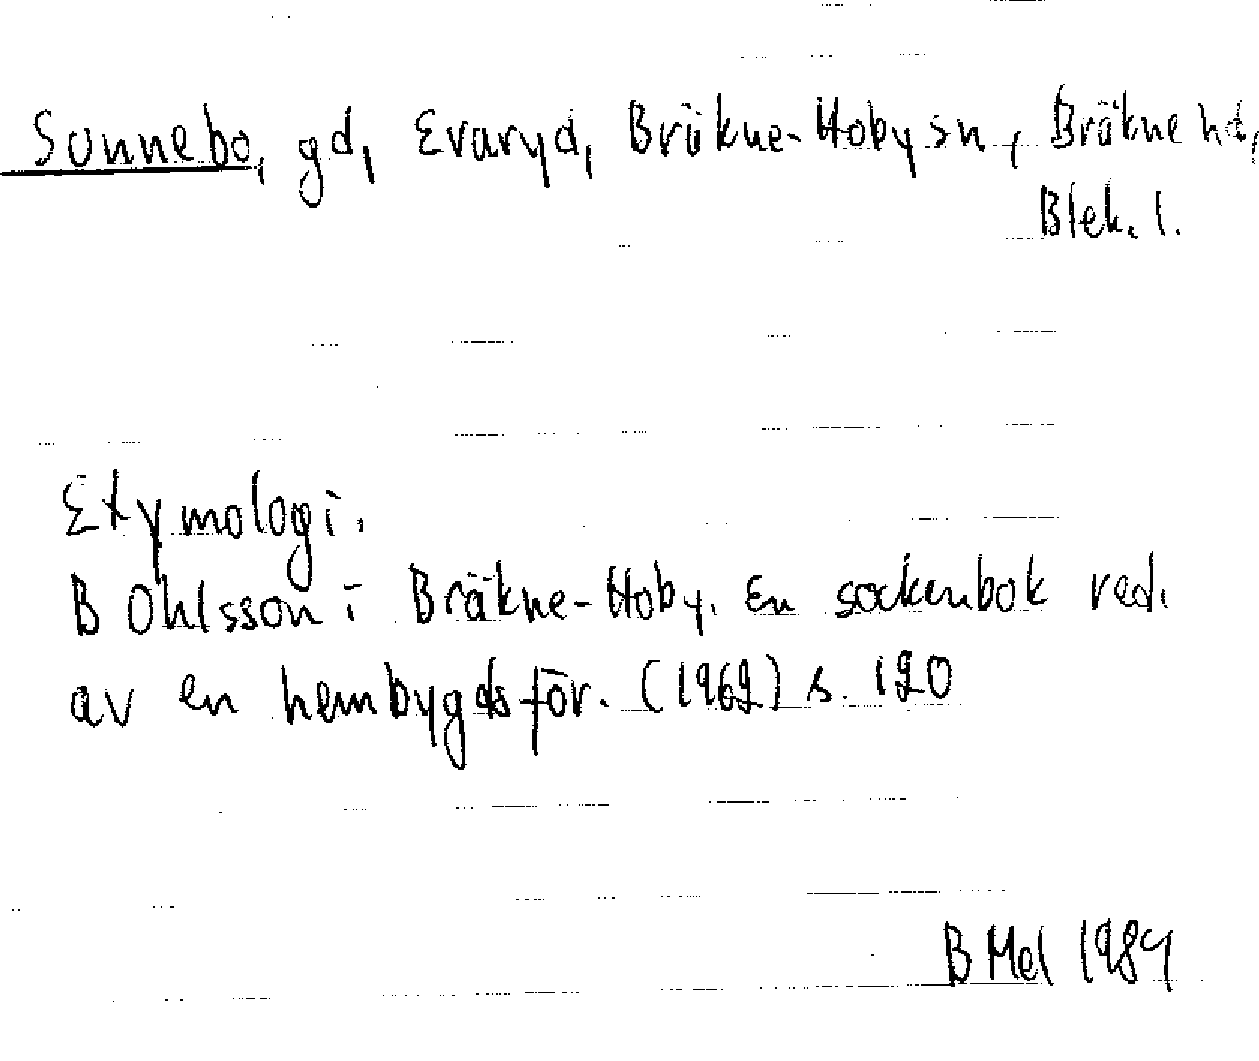 Sonnebo, gd, Evaryd, Bräkne-Hoby sn, Bräkne hd,
Blek. l.
Etymologi.
B Ohlsson i Bräkne-Hoby. En sockenbok red.
av en hembygdsför. (1962) s. 120
B Mel 1984